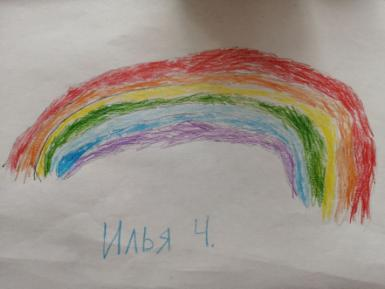 Илья Ч.